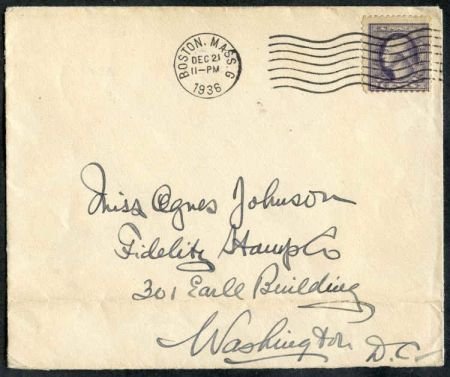 BOSTON, MASS. G
DEC 21
11-PM
1936
Miss Agnes Johnson
Fidelity Stamp Co
301 Earle Building
Washington D.C.